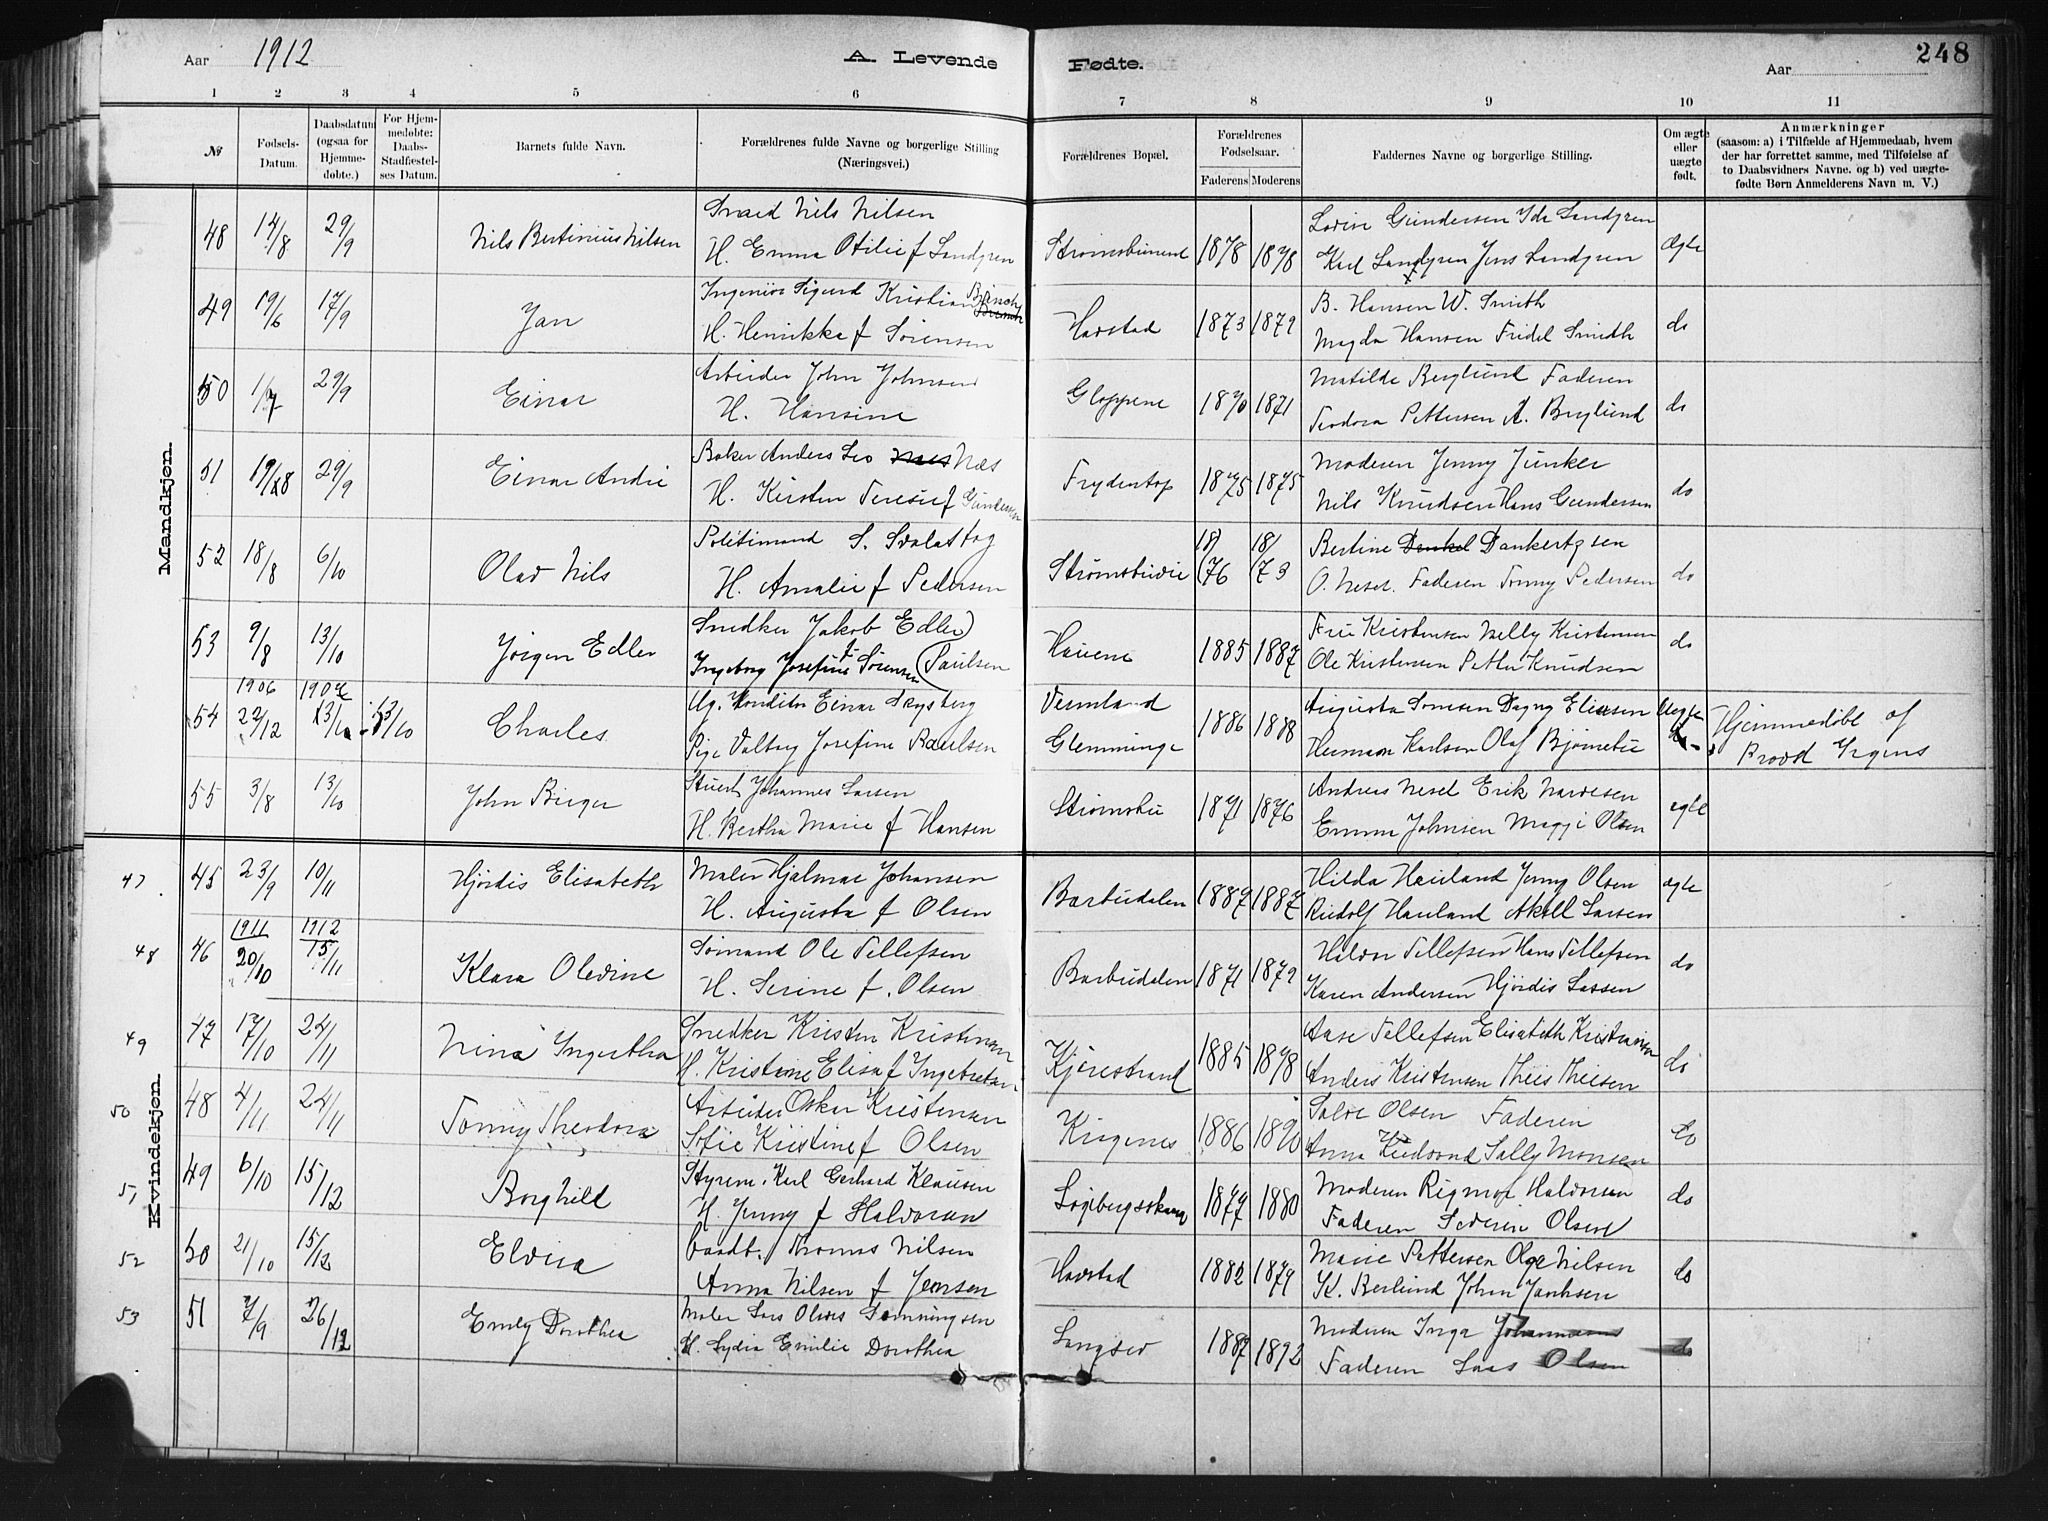 Aar 1912
A. Levende Fødte.
Aar
248
1 2 3 4 5 6 7 8 9 10 11
№
Fødsels-Datum.
Daabsdatum (ogsaa for Hjemme-døbte.)
For Hjem-medøbte: Daabs-Stadfæstel-ses Datum.
Barnets fulde Navn.
Forældrenes fulde Navne og borgerlige Stilling (Næringsvei.)
Forældrenes Bopæl.
Forældrenes Fødselsaar.
Faderens Moderens
Faddernes Navne og borgerlige Stilling.
Om ægte eller uægte født.
Anmærkninger
(saasom: a) i Tilfælde af Hjemmedaab, hvem
der har forrettet samme, med Tilføielse af
to Daabsvidners Navne. og b) ved uægte-
fødte Børn Anmelderens Navn m. V.)
Mandkjøn.
48 14/8 29/9 Nils Bertinius Nilsen Nils Nilsen Strømsbu 1878 1878 Gundersen Ida Landgren ægte
H. Emma Otilie f Landgren Karl Landgren Jens Landgren
49 19/6 17/9 Jan Ingeniør Sigurd Kristian Havstad 1873 1879 B. Hansen W. Smith do
H. Henrikka f Sørensen Magda Hansen Fridel Smith
50 1/7 29/9 Einar Arbeider John Johnsen Gloppene 1870 1871 Matilde Berglund Faderen do
H. Hansine Teodora Pettersen A. Berglund
51 19/8 29/9 Einar Andre Baker Anders Leo Næs Frydentop 1875 1875 Moderen Jenny Junker do
H. Kirsten Teresie f Gundersen Nils Knudsen Hans Gundersen
52 18/8 6/10 Olav Nils Politimand S. 18/76 18/73 Bertine Dankertzsen do
H. Amalie f Pedersen O. Neset. Faderen Tonny Pedersen
53 9/8 13/10 Jørgen Edler Snedker Jakob Edler Hauene 1885 1887 Fru Kristensen Nelly Kristensen do
Ingeborg Josefine f Sørensen (Paulsen) Ole Kristensen Petter Knudsen
1906
54 22/12 13/10 13/10 Charles Ug. Konditor Einar Vermland 1886 1888 Augusta Dagny Eliasen Uegte Hjemmedøbt af
Pige Valborg Josefine Paulsen Glemminge Herman Karlsen Olaf Bjørnebu Provst Irgens
55 3/8 13/10 John Birger Stuert Johannes Larsen Strømsbu 1871 1876 Andreas Nesel Erik egte
H. Bertha Marie f Hansen Emma Johnsen Maggi Olsen
Kvindekjøn.
47 45 23/9 10/11 Hjørdis Elisabeth Maler Hjalmar Johansen Barbudalen 1887 1887 Hilda Hauland Jenny Olsen ægte
H. Augusta f Olsen Rudolf Hauland Aksell Larsen
1911 1912
48 46 20/10 15/11 Klara Olevine Sømand Ole Tellefsen Barbudalen 1871 1879 Halvor Tellefsen Hans Tellefsen do
H. Serine f. Olsen Karen Andersen Hjørdis Lassen
49 47 17/10 24/11 Nina Ingertha Snedker Kristen Kristensen Kjørestrand 1885 1878 Aase Tellefsen Elisabeth do
H. Kristine Elisa f Anders Kristensen Theis Theisen
50 48 4/11 24/11 Tonny Theodora Arbeider Oskar Kristensen 1886 1890 Salve Olsen Faderen do
Sofie Kristine f Olsen Anna Sally Monsen
51 49 6/10 15/12 Borghild Styrem. Karl Gerhard Klausen 1877 1880 Moderen Rigmor Halvorsen do
H. Jenny f Halvorsen Faderen Severin Olsen
52 50 21/10 15/12 Elvira Nilsen Havstad 1882 1879 Marie Pettersen Olga Nilsen do
Anna Nilsen f Jensen K. Berlund John
53 51 7/9 26/12 Emely Dorothea Maler Lars Langsev 1887 1892 Moderen Inga do
H. Lydia Emilie Dorothea Faderen Olsen